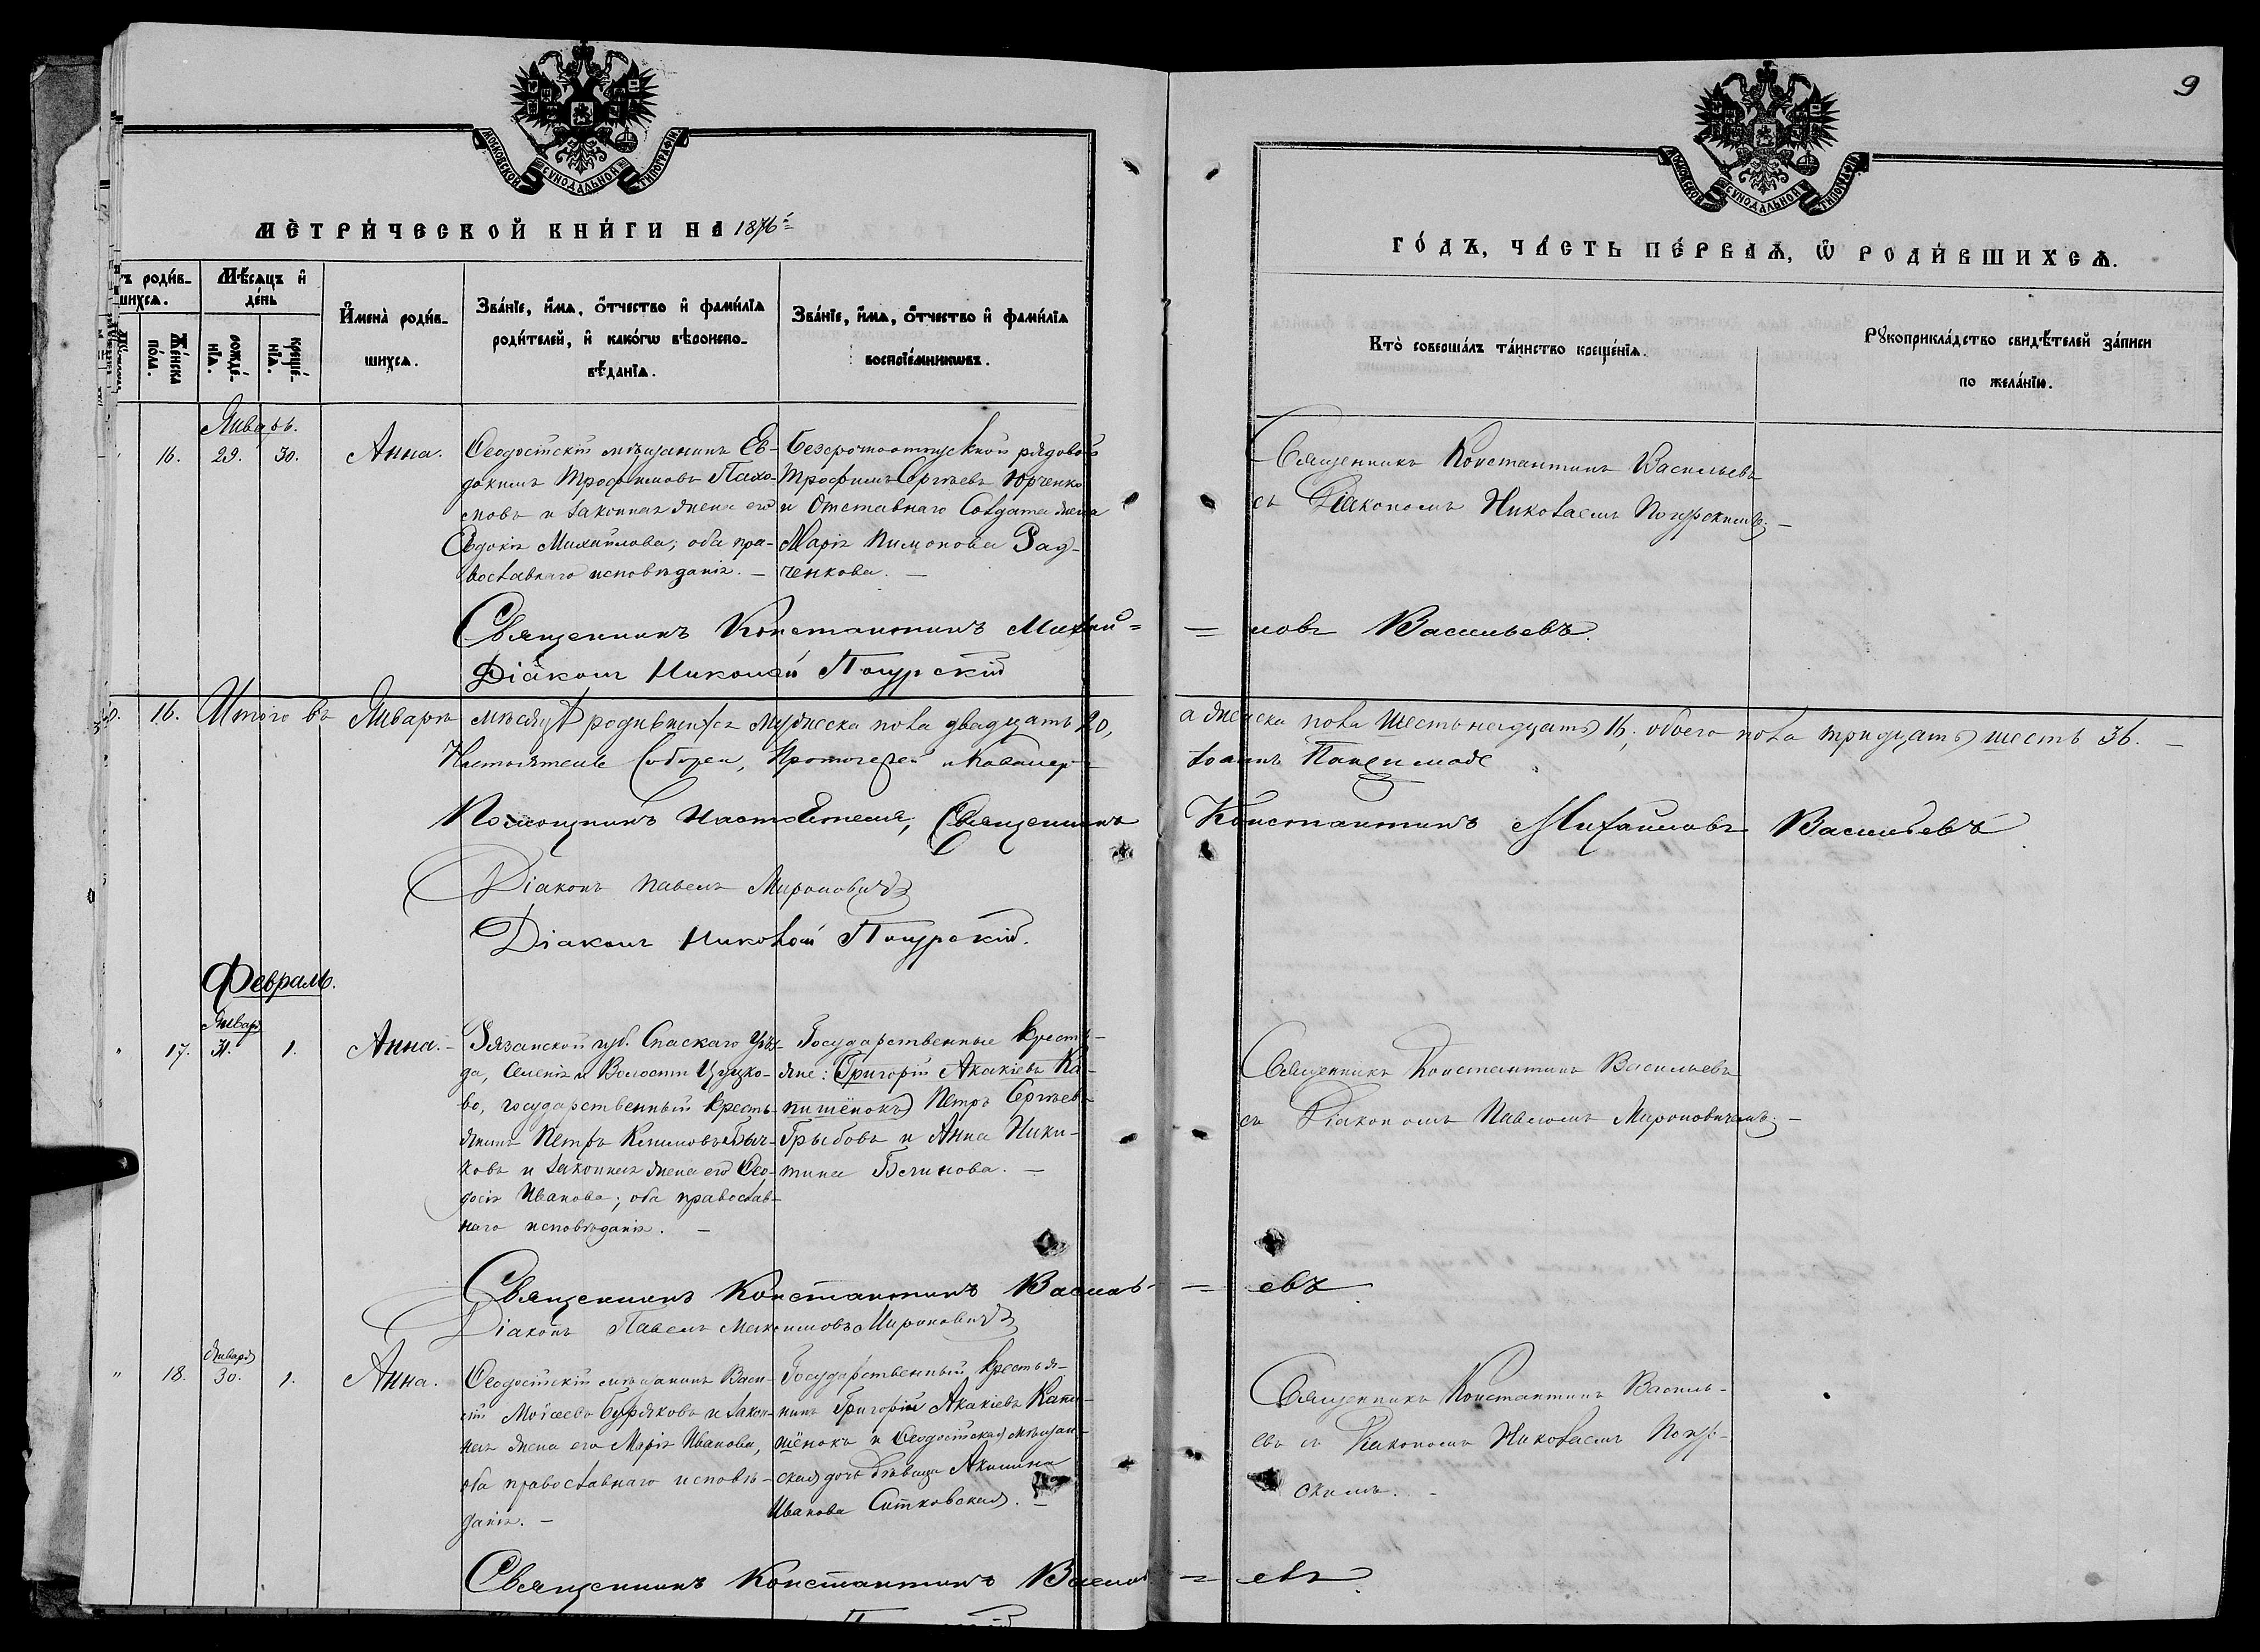 9
МОСКОВСКОЙ СѴНОДАЛЬНОЙ ТИПОГРАФІИ
МОСКОВСКОЙ СѴНОДАЛЬНОЙ ТИПОГРАФІИ
МЕТРИЧЕСКОЙ КНИГИ НА 1876й
ГОДЪ, ЧАСТЬ ПЕРВАЯ, Ѡ РОДИВШИХСЯ.
родив-
шихся.
Женска
пола.
Мѣсяцъ и
день
рожде-
нія.
креще-
нія.
Имена родив-
шихся.
Званіе, имя, отчество и фамилія
родителей, и какогѡ вѣроиспо-
вѣданія.
Званіе, имя, отчество и фамилія
воспріемниковъ.
Кто совершалъ таинство крещенія.
Рукоприкладство свидѣтелей записи
по желанію.
Январь.
16. 29. 30. Анна.
Ѳеодосійскій мѣщанинъ Ев-
докимъ Трофимовъ Пахо-
мовъ и законная жена его
Евдокія Михайлова; оба пра-
вославнаго исповѣданія. —
Безсрочноотпускной рядовой
Трофимъ Сергѣевъ Юрченко
и Отставнаго Солдата жена
Марія Пимонова Рад-
ченкова. —
Священникъ Константинъ Васильевъ
съ Діакономъ Николаемъ —
Священникъ Константинъ Михай= =ловъ Васильевъ.
Діаконъ Николай
16. Итого въ Январѣ мѣсяцѣ родившихся мужеска пола двадцать 20, а женска пола шестьнадцать 16; обоего пола тридцать шесть 36. —
Настоятель Собора, Протоіерей и Кавалеръ Іоаннъ
Помощникъ Настоятеля, Священникъ Константинъ Михаиловъ Васильевъ
Діаконъ Павелъ Мироновичъ
Діаконъ Николай
Февраль.
Января
17. 31. 1. Анна. —
Рязанской губ. Спаскаго Уѣз-
да, Селенія и Волости
во, государственный кресть-
янинъ Петръ
ковъ и законная жена его Ѳео-
досія Иванова; оба православ-
наго исповѣданія. —
Государственные кресть-
яне: Григорій Акакіевъ Ка-
пишёнокъ Петръ Сергѣевъ
Грыбовъ и Анна Ники-
тина Блинова. —
Священникъ Константинъ Васильевъ
съ Діакономъ Павломъ Мироновичемъ. —
Священникъ Константинъ Василь- = евъ
Діаконъ Павелъ Максимовъ Мироновичъ
Января
18. 30. 1. Анна.
Ѳеодосійскій мѣщанинъ Васи-
лій Моѵсеевъ Буряковъ и закон-
ная жена его Марія Иванова,
оба православнаго исповѣ-
данія. —
Государственный крестья-
нинъ Григорій Акакіевъ Капи-
шёнокъ и Ѳеодосійская мѣщан-
ская дочь дѣвица Акилина
Иванова Ситковская. —
Священникъ Константинъ Василь-
евъ съ Діакономъ Николаемъ
скимъ. —
Священникъ Константинъ Василь = евъ